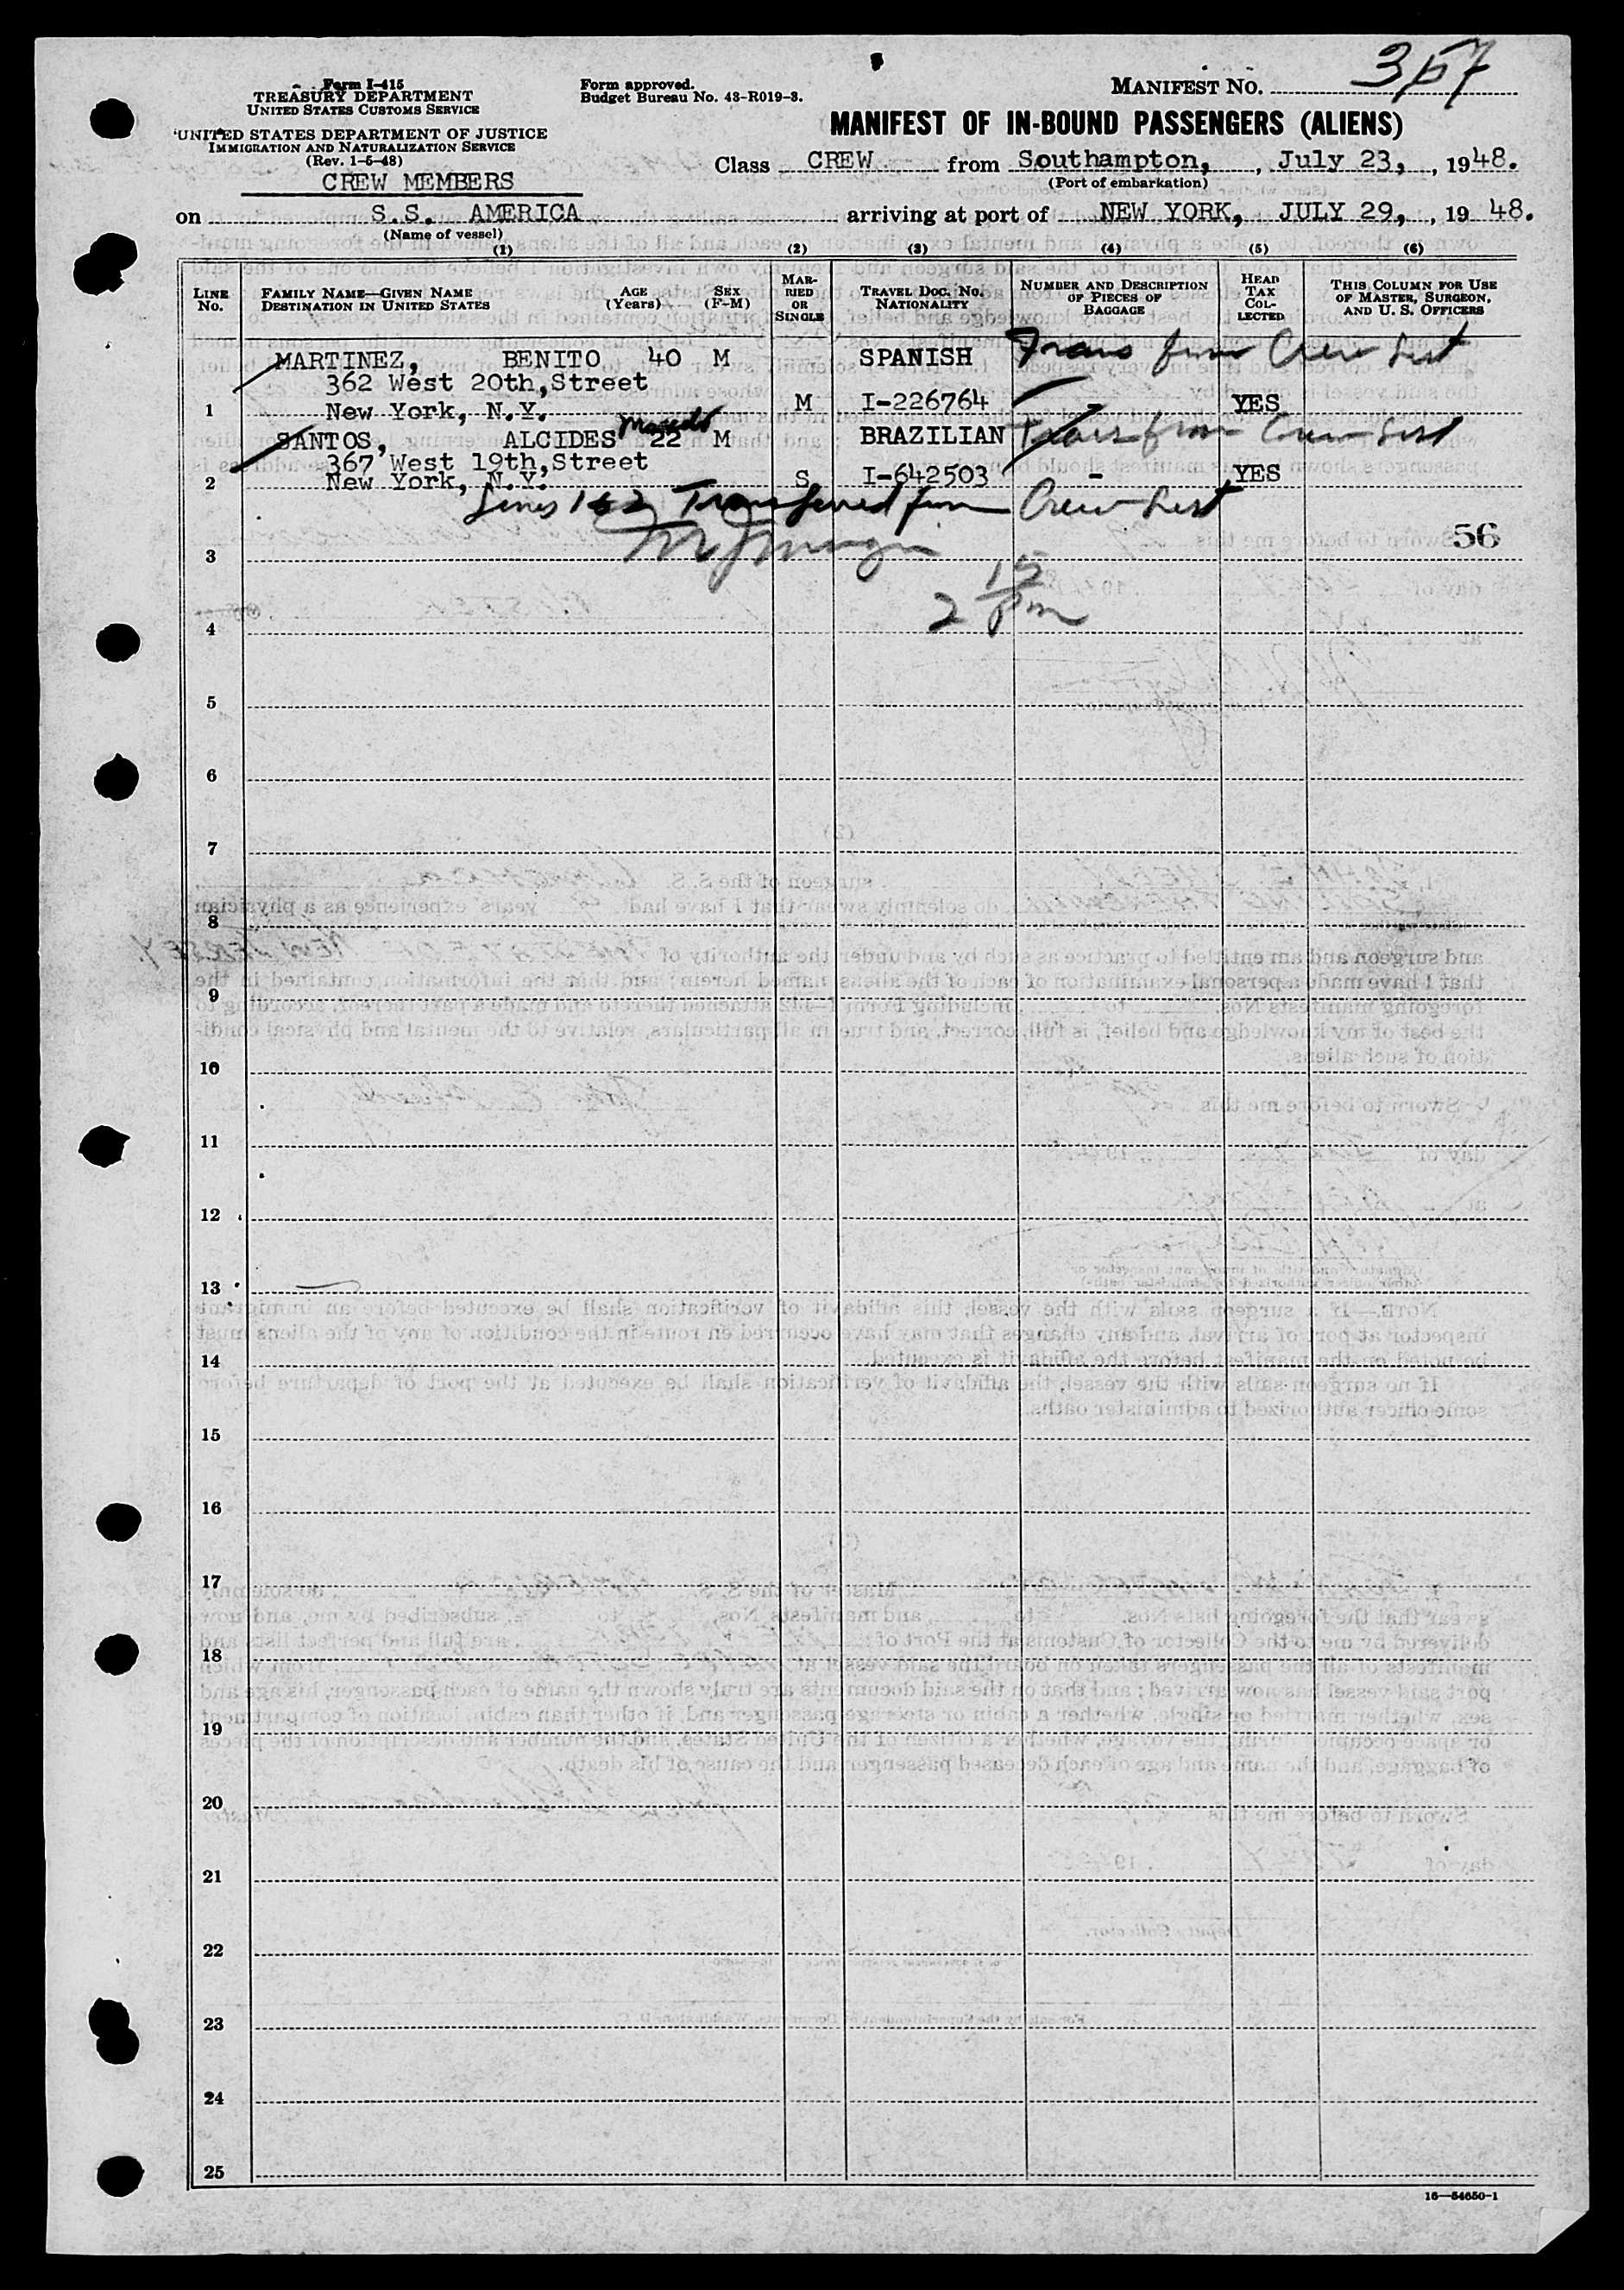 Form I-415
TREASURY DEPARTMENT
UNITED STATES CUSTOMS SERVICE
UNITED STATES DEPARTMENT OF JUSTICE
IMMIGRATION AND NATURALIZATION SERVICE
(Rev. 1-5-48)
CREW MEMBERS
Form approved.
Budget Bureau No. 43-R019-3.
MANIFEST NO. 357
MANIFEST OF IN-BOUND PASSENGERS (ALIENS)
Class CREW from Southampton, , July 23, , 1948.
(Port of embarkation)
on S.S. AMERICA arriving at port of NEW YORK, JULY 29, , 19 48.
(Name of vessel)
(1) (2) (3) (4) (5) (6)
LINE No. FAMILY NAME—GIVEN NAME DESTINATION IN UNITED STATES AGE (Years) SEX (F-M) MARRIED OR SINGLE TRAVEL DOC. NO. NATIONALITY NUMBER AND DESCRIPTION OF PIECES OF BAGGAGE HEAD TAX COLLECTED THIS COLUMN FOR USE OF MASTER, SURGEON, AND U. S. OFFICERS
MARTINEZ, BENITO 40 M SPANISH Trans from Crew List
362 West 20th,Street
1 New York, N.Y. M I-226764 YES
SANTOS, ALCIDES 22 M BRAZILIAN Trans from Crew List
367 West 19th,Street
2 New York, N.Y. S I-642503 - YES
Lines 1 & 2 Transferred from Crew List
56
3
2 15 pm
4
5
6
7
8
9
10
11
12
13
14
15
16
17
18
19
20
21
22
23
24
25
16—54650-1